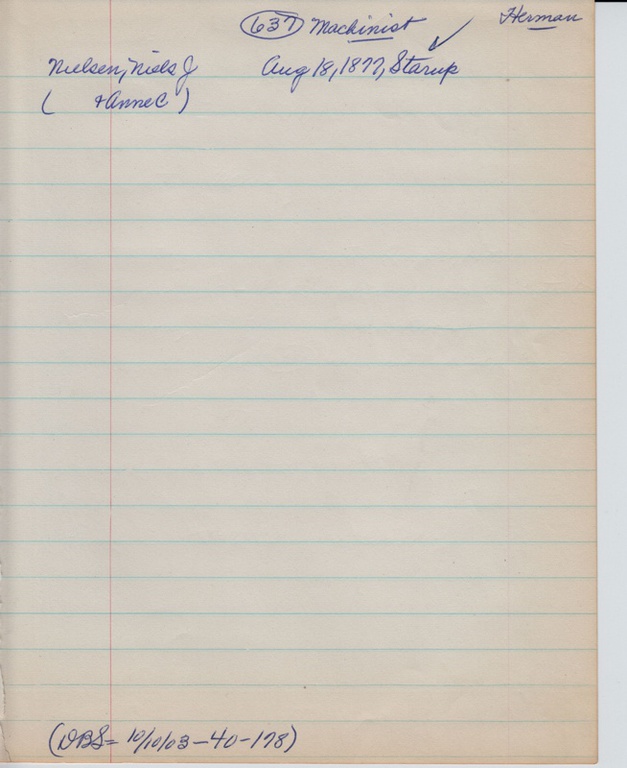 (637) Machinist ✓ Herman
Nielsen, Niels J Aug 18, 1877, Starup
( + Anne C )
(DBS= 10/10/03-40-178)